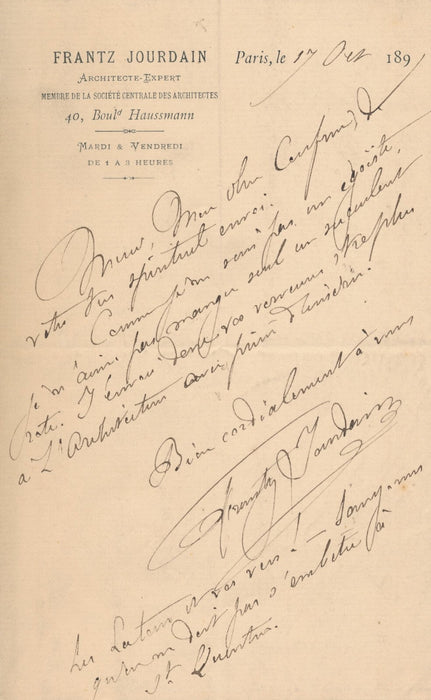 FRANTZ JOURDAIN
ARCHITECTE-EXPERT
MEMBRE DE LA SOCIÉTÉ CENTRALE DES ARCHITECTES
40, Boulᵈ Haussmann
MARDI & VENDREDI
DE 1 A 3 HEURES
Paris, le 17 Oct 189
Merci, Mon cher Confrère, de
votre spirituel envoi.
Comme je ne suis pas un égoïste,
je n'aime pas manger seul un succulent
rôti. J'envoie donc vos
à L'Architecture avec prière d'insérer.
Bien cordialement à vous
Frantz Jourdain
et vos vers !
qu'on ne doit pas s'embêter à
St Quentin.